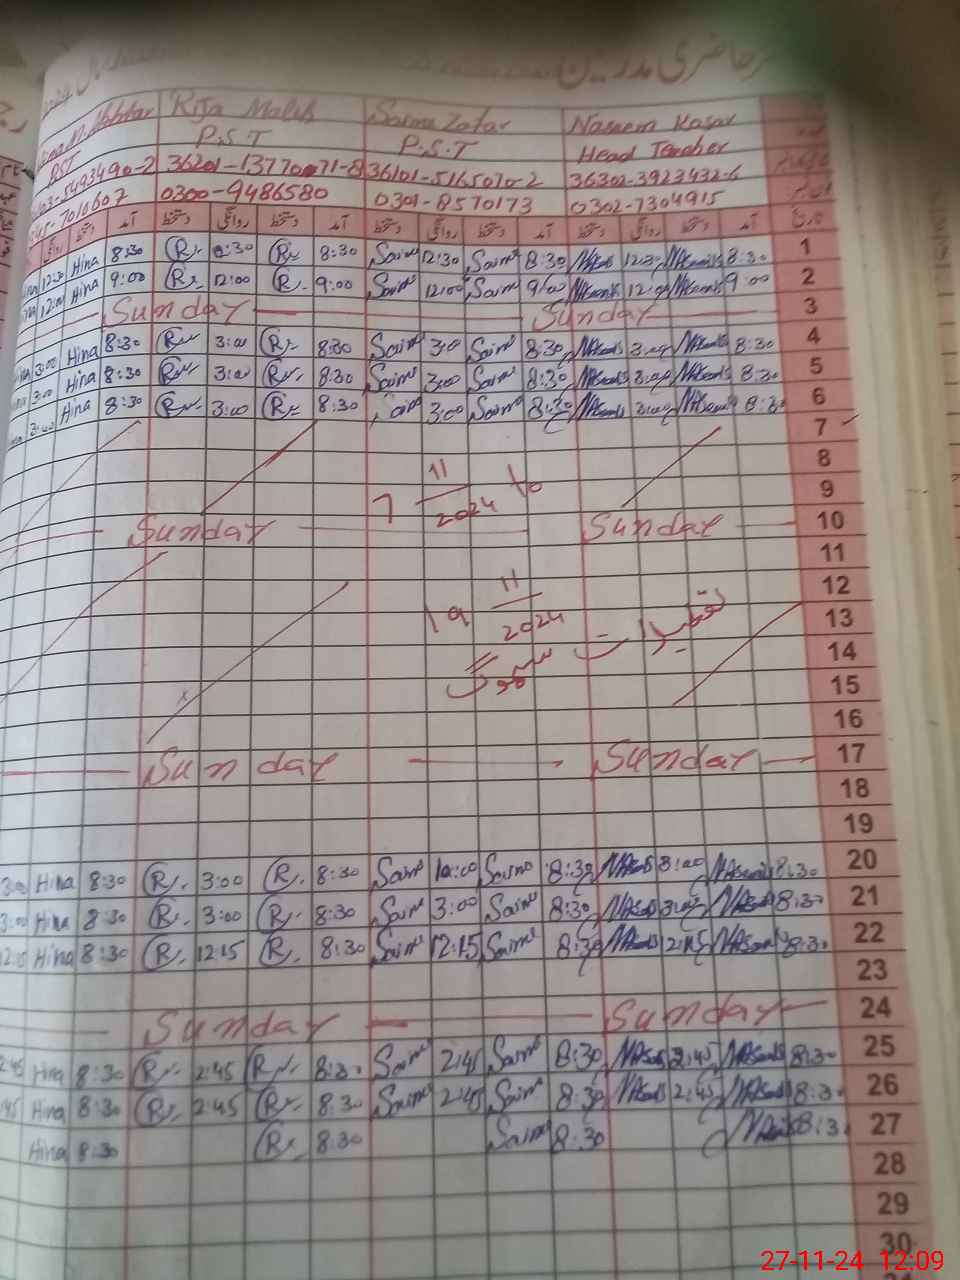 حاضری مدرسین
Rija Malik Saima Zafar Naseem Kosar
PST P.S.T P.S.T Head Teacher
5493490-2 36201-13770071-8 36101-5165070-2 36302-3923432-6
7010607 0300-9486580 0301-8570173 0302-7304915
روانگی دستخط آمد دستخط روانگی دستخط آمد دستخط روانگی دستخط آمد دستخط روانگی دستخط آمد تاریخ
12:30 Hina 8:30 R 12:30 R 8:30 Saima 12:30 Saima 8:30 12:30 8:30 1
12:00 Hina 9:00 R 12:00 R 9:00 Saima 12:00 Saima 9:00 12:00 9:00 2
Sunday Sunday 3
3:00 Hina 8:30 R 3:00 R 8:30 Saima 3:00 Saima 8:30 3:00 8:30 4
3:00 Hina 8:30 R 3:00 R 8:30 Saima 3:00 Saima 8:30 3:00 8:30 5
3:00 Hina 8:30 R 3:00 R 8:30 Saima 3:00 Saima 8:30 3:00 8:30 6
7
8
7 11/2024 to 9
Sunday Sunday 10
11
12
19 11/2024 تعطیلات 13
سموگ 14
15
16
Sunday Sunday 17
18
19
3:00 Hina 8:30 R 3:00 R 8:30 Saima 10:00 Saima 8:30 3:00 8:30 20
3:00 Hina 8:30 R 3:00 R 8:30 Saima 3:00 Saima 8:30 3:00 8:30 21
12:15 Hina 8:30 R 12:15 R 8:30 Saima 12:15 Saima 8:30 12:15 8:30 22
23
Sunday Sunday 24
2:45 Hina 8:30 R 2:45 R 8:30 Saima 2:45 Saima 8:30 2:45 8:30 25
2:45 Hina 8:30 R 2:45 R 8:30 Saima 2:45 Saima 8:30 2:45 8:30 26
Hina 8:30 R 8:30 Saima 8:30 8:30 27
28
29
30
27-11-24 12:09